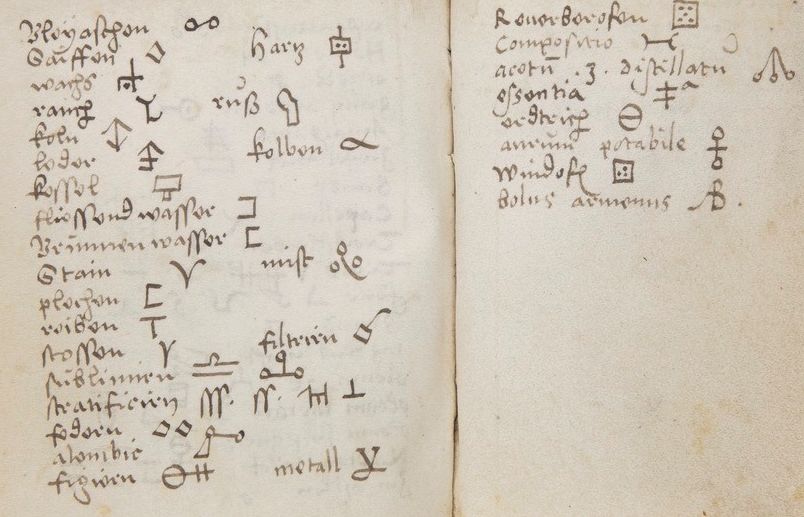 Bleyaschen
Saiffen
wachs
rauch
koln
leder
kessel
fliessend wasser
Brunnen wasser
Stain
plechen
reiben
stossen
sublimien
stratificien sss. ss.
federn
alembic
figien
hartz
ruß
kolben
mist
filtrien
metall
Reverberofen
Compositio
acetu .3. distillatu
essentia
erdtrich
aurum potabile
Windofe
bolus armenus